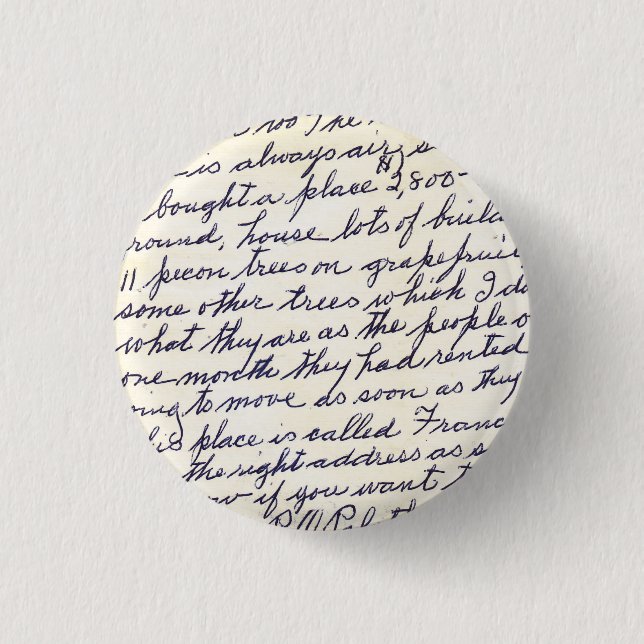 is always air
bought a place $2,800-
round, house lots of build
11 pecon trees on grapefrui
some other trees which I do
what they are as the people o
one month they had rented
ing to move as soon as they
is place is called Franc
the right address as s
w if you want t